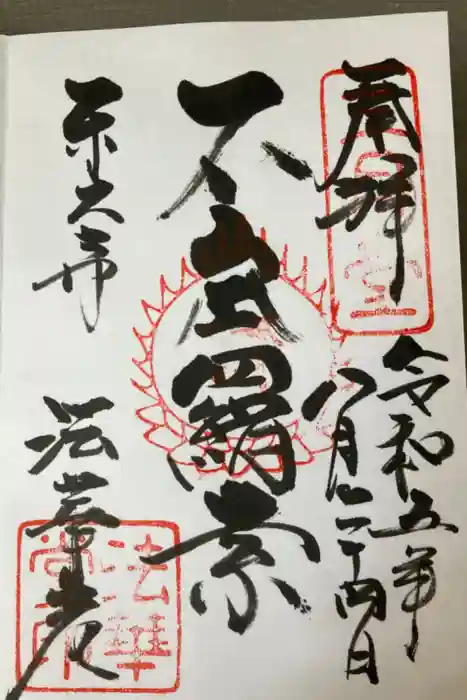 奉拝
令和五年
八月二十四日
不空羂索
東大寺
法華堂
法華
堂印